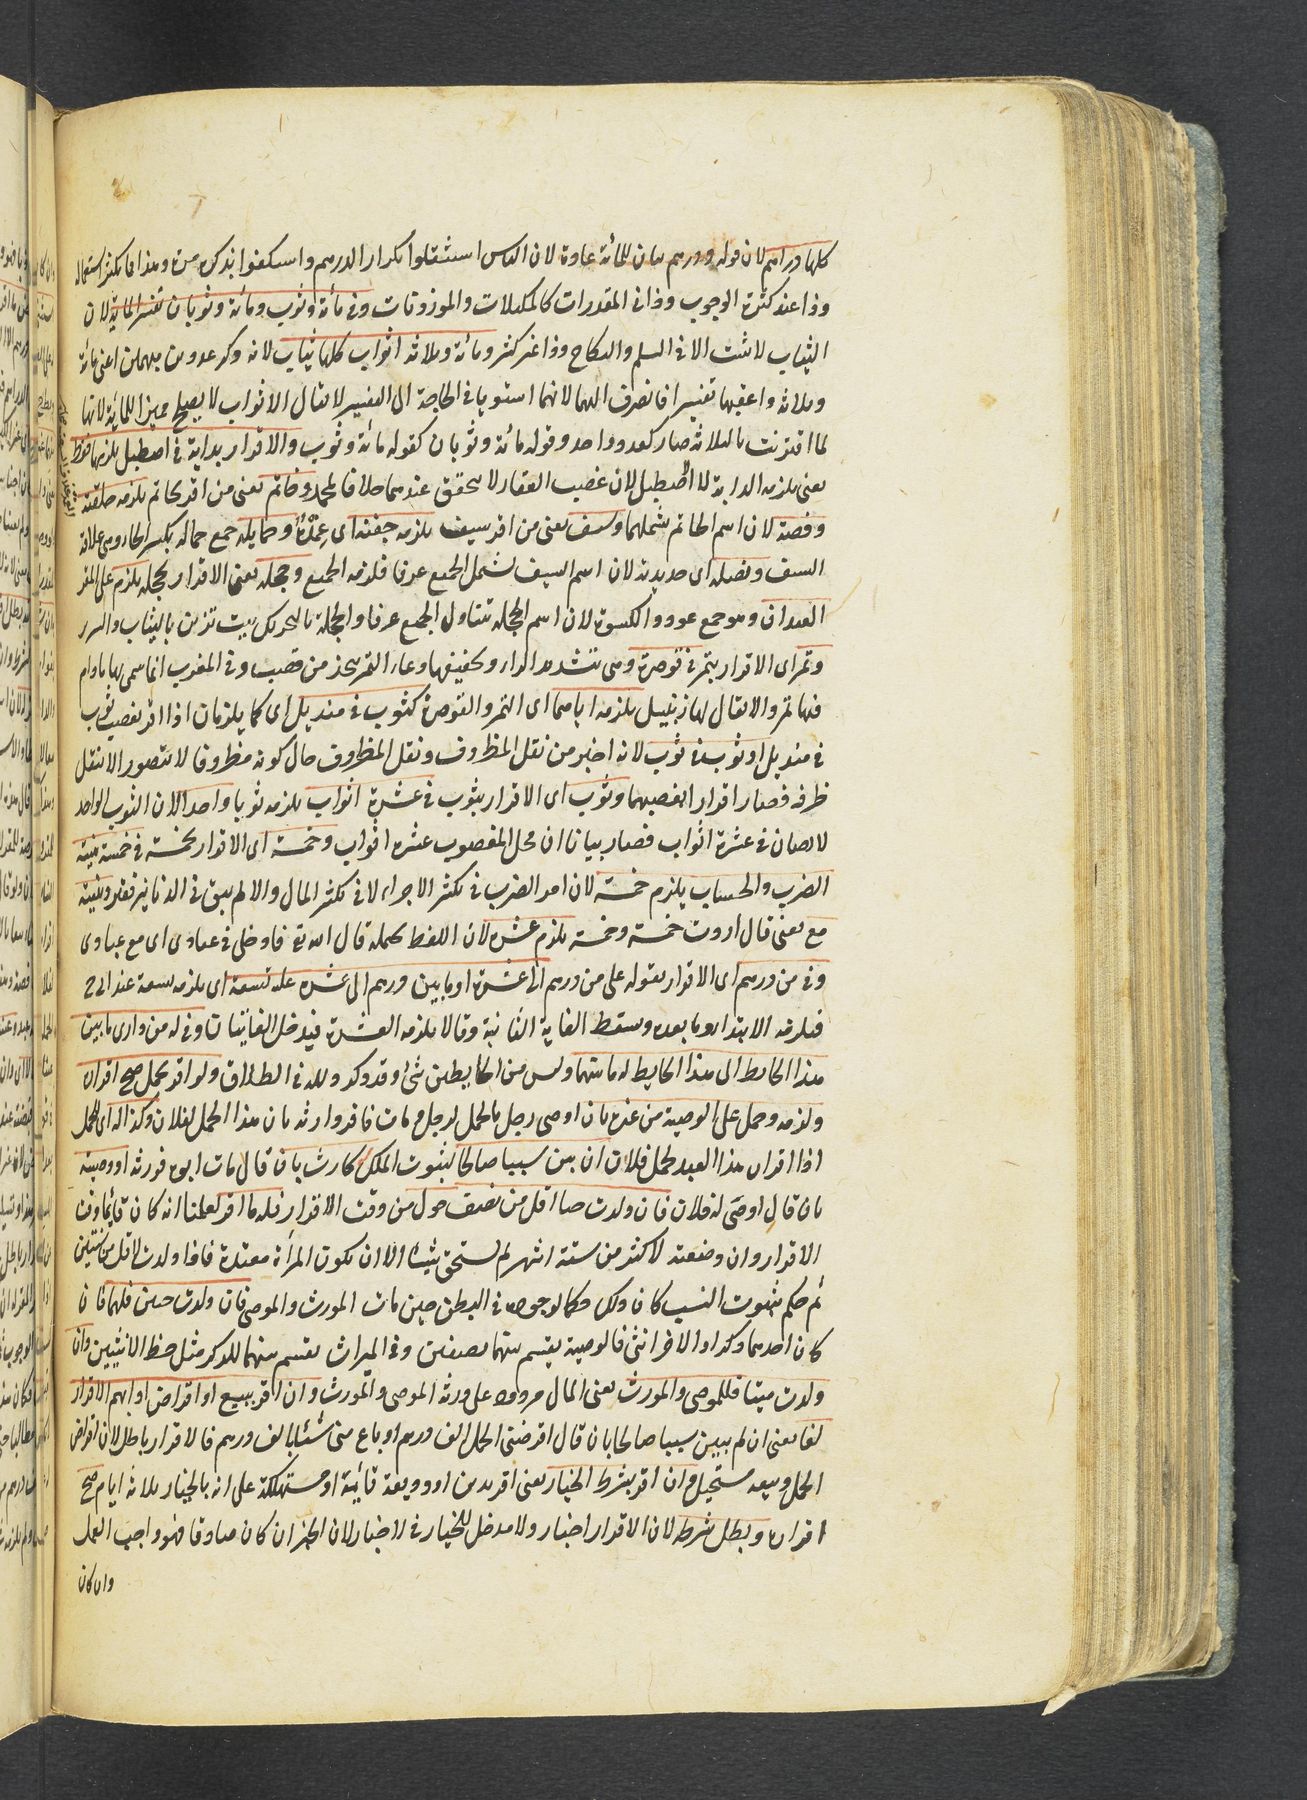 كلها دراهم لان قوله ودرهم بيان للمأئة عادة لان الناس استثقلوا تكرار الدرهم واستكفوا بذكره مرة وهذا فيما يكثر استعماله
وذا عند كثرة الوجوب وذا في المقدرات كالمكيلات والموزونات وفي مأئة وثوب ومأئة وثوبان تفسير المائة لان
الثياب لا تثبت الا في السلم والنكاح وذا غير كثير ومائة وثلاثة اثواب كلها ثياب لانه ذكر عددين مبهمين اعني مائة
وثلاثة واعقبها تفسيرا فانصرف اليهما لانهما استويا في الحاجة الى التفسير لا يقال الاثواب لا يصلح مميزا للمائة لانها
لما اقترنت بالثلاثة صار كعدد واحد وقوله مائة وثوبان كقوله مائة وثوب والاقرار بداية في اصطبل يلزمها فقط
يعني يلزمه الدابة لا الاصطبل لان غصب العقار لا يتحقق عندهما خلافا لمحمد وخاتم يعني من اقر بخاتم يلزمه حلقته
وفصه لان اسم الخاتم يشملهما وسيف يعني من اقر بسيف يلزمه جفنه اى غمده وحمايله جمع حماله بكسر الحاء وهي علاقة
السيف ونصله اى حديدته لان اسم السيف يشمل الجميع عرفا فلزمه الجميع وحجلة يعني الاقرار بحجلة يلزم على المقر
العيدان وهو جمع عود والكسوة لان اسم الحجلة يتناول الجميع عرفا والحجلة بالتحريك بيت تزين بالثياب والسرر
وتمر اى الاقرار بتمر في قوصرة وهي بتشديد الراء وتخفيفها وعاء التمر يتخذ من قصب وفي المغرب انما سمى بها مادام
فيها تمر والا يقال لها زنبيل يلزمه اياهما اى التمر والقوصرة كثوب في منديل اى كما يلزمان اذا اقر بغصب ثوب
في منديل او ثوب في ثوب لانه اخبر من نقل المظروف ونقل المظروف حال كونه مظروفا لا يتصور الا بنقل
ظرفه فصار اقرارا بغصبهما وثوب اى الاقرار بثوب في عشرة اثواب يلزمه ثوبا واحدا لان الثوب الواحد
لا يصان في عشرة اثواب فصار بيانا ان محل المغصوب عشرة اثواب وخمسة اى الاقرار بخمسة في خمسة بنية
الضرب والحساب يلزم خمسة لان امر الضرب في تكثر الاجزاء لا في تكثر المال والا لم يبق في الدنيا فقير وبنية
مع يعني قال اردت خمسة وخمسة يلزم عشرة لان اللفظ يحتمله قال الله تع فادخلي في عبادى اى مع عبادى
وفي من درهم اى الاقرار بقوله علي من درهم الى عشرة او ما بين درهم الى عشرة عليه تسعة اى يلزمه تسعة عند ابي ح
فيلزمه الابتداء وما بعده وسقط الغاية الثانية وقالا يلزمه العشرة فيدخل الغايتان وفي له من دارى ما بين
هذا الحايط الى هذا الحايط له ما بينهما وليس من الحايطين شئ وقد ذكر دليله في الطلاق ولو اقر بحمل صح اقراره
ولزمه وحمل على الوصية من غيره بان اوصى رجل بالحمل لرجل ومات فاقر وارثه بان هذا الحمل لفلان وكذا له اى للحمل
اذا اقر ان هذا العبد لحمل فلان ان بين سببا صالحا لثبوت الملك كارث بان قال مات ابوه فورثه او وصية
بان قال اوصى له فلان فان ولدت حيا اقل من نصف حول من وقت الاقرار فله ما اقر لعلمنا انه كان قايما وقت
الاقرار وان وضعته لاكثر من ستة اشهر لم يستحق شيئا الا ان يكون المرأة معتدة فاذا ولدت لاقل من سنتين
ثم حكم بثبوت النسب كان ذلك حكما لوجوده في البطن حين مات المورث والموصى فان ولدت حيين فلهما فان
كان احدهما ذكرا والاخر انثى فالوصية يقسم بينهما نصفين وفي الميراث يقسم بينهما للذكر مثل حظ الانثيين وان
ولدت ميتا فللموصى والمورث يعني المال مردود على ورثة الموصى والمورث وان اقر ببيع او اقراض او ابهم الاقرار
لغا يعني ان لم يبين سببا صالحا بان قال اقرضني الحمل الف درهم او باع مني شيئا بالف درهم فالاقرار باطل لان اقراض
الحمل وبيعه مستحيل وان اقر بشرط الخيار يعني اقر بدين او وديعة قائمة او مستهلكة على انه بالخيار ثلاثة ايام صح
اقراره وبطل شرطه لان الاقرار اخبار ولا مدخل للخيار في الاخبار لان الخبر ان كان صادقا فهو واجب العمل
وان كان